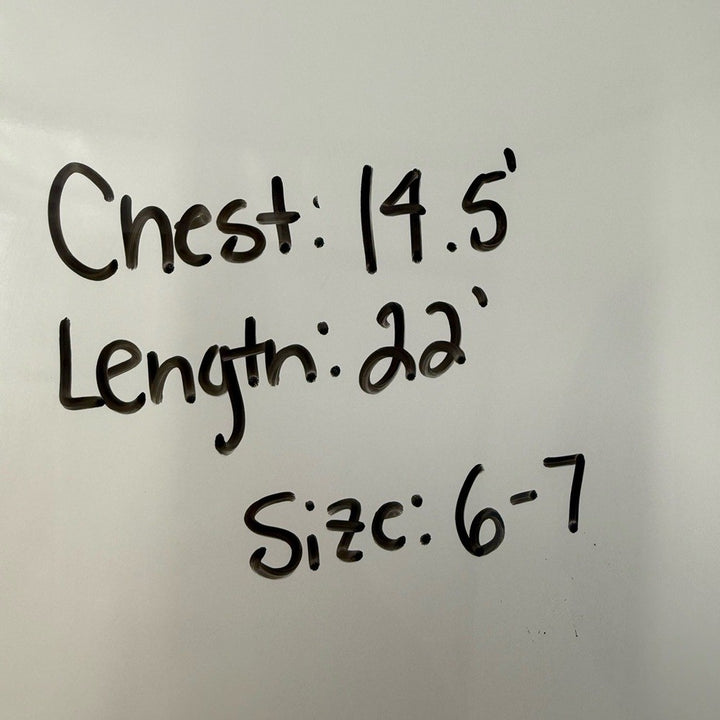 Chest: 14.5'
Length: 22'
Size: 6-7